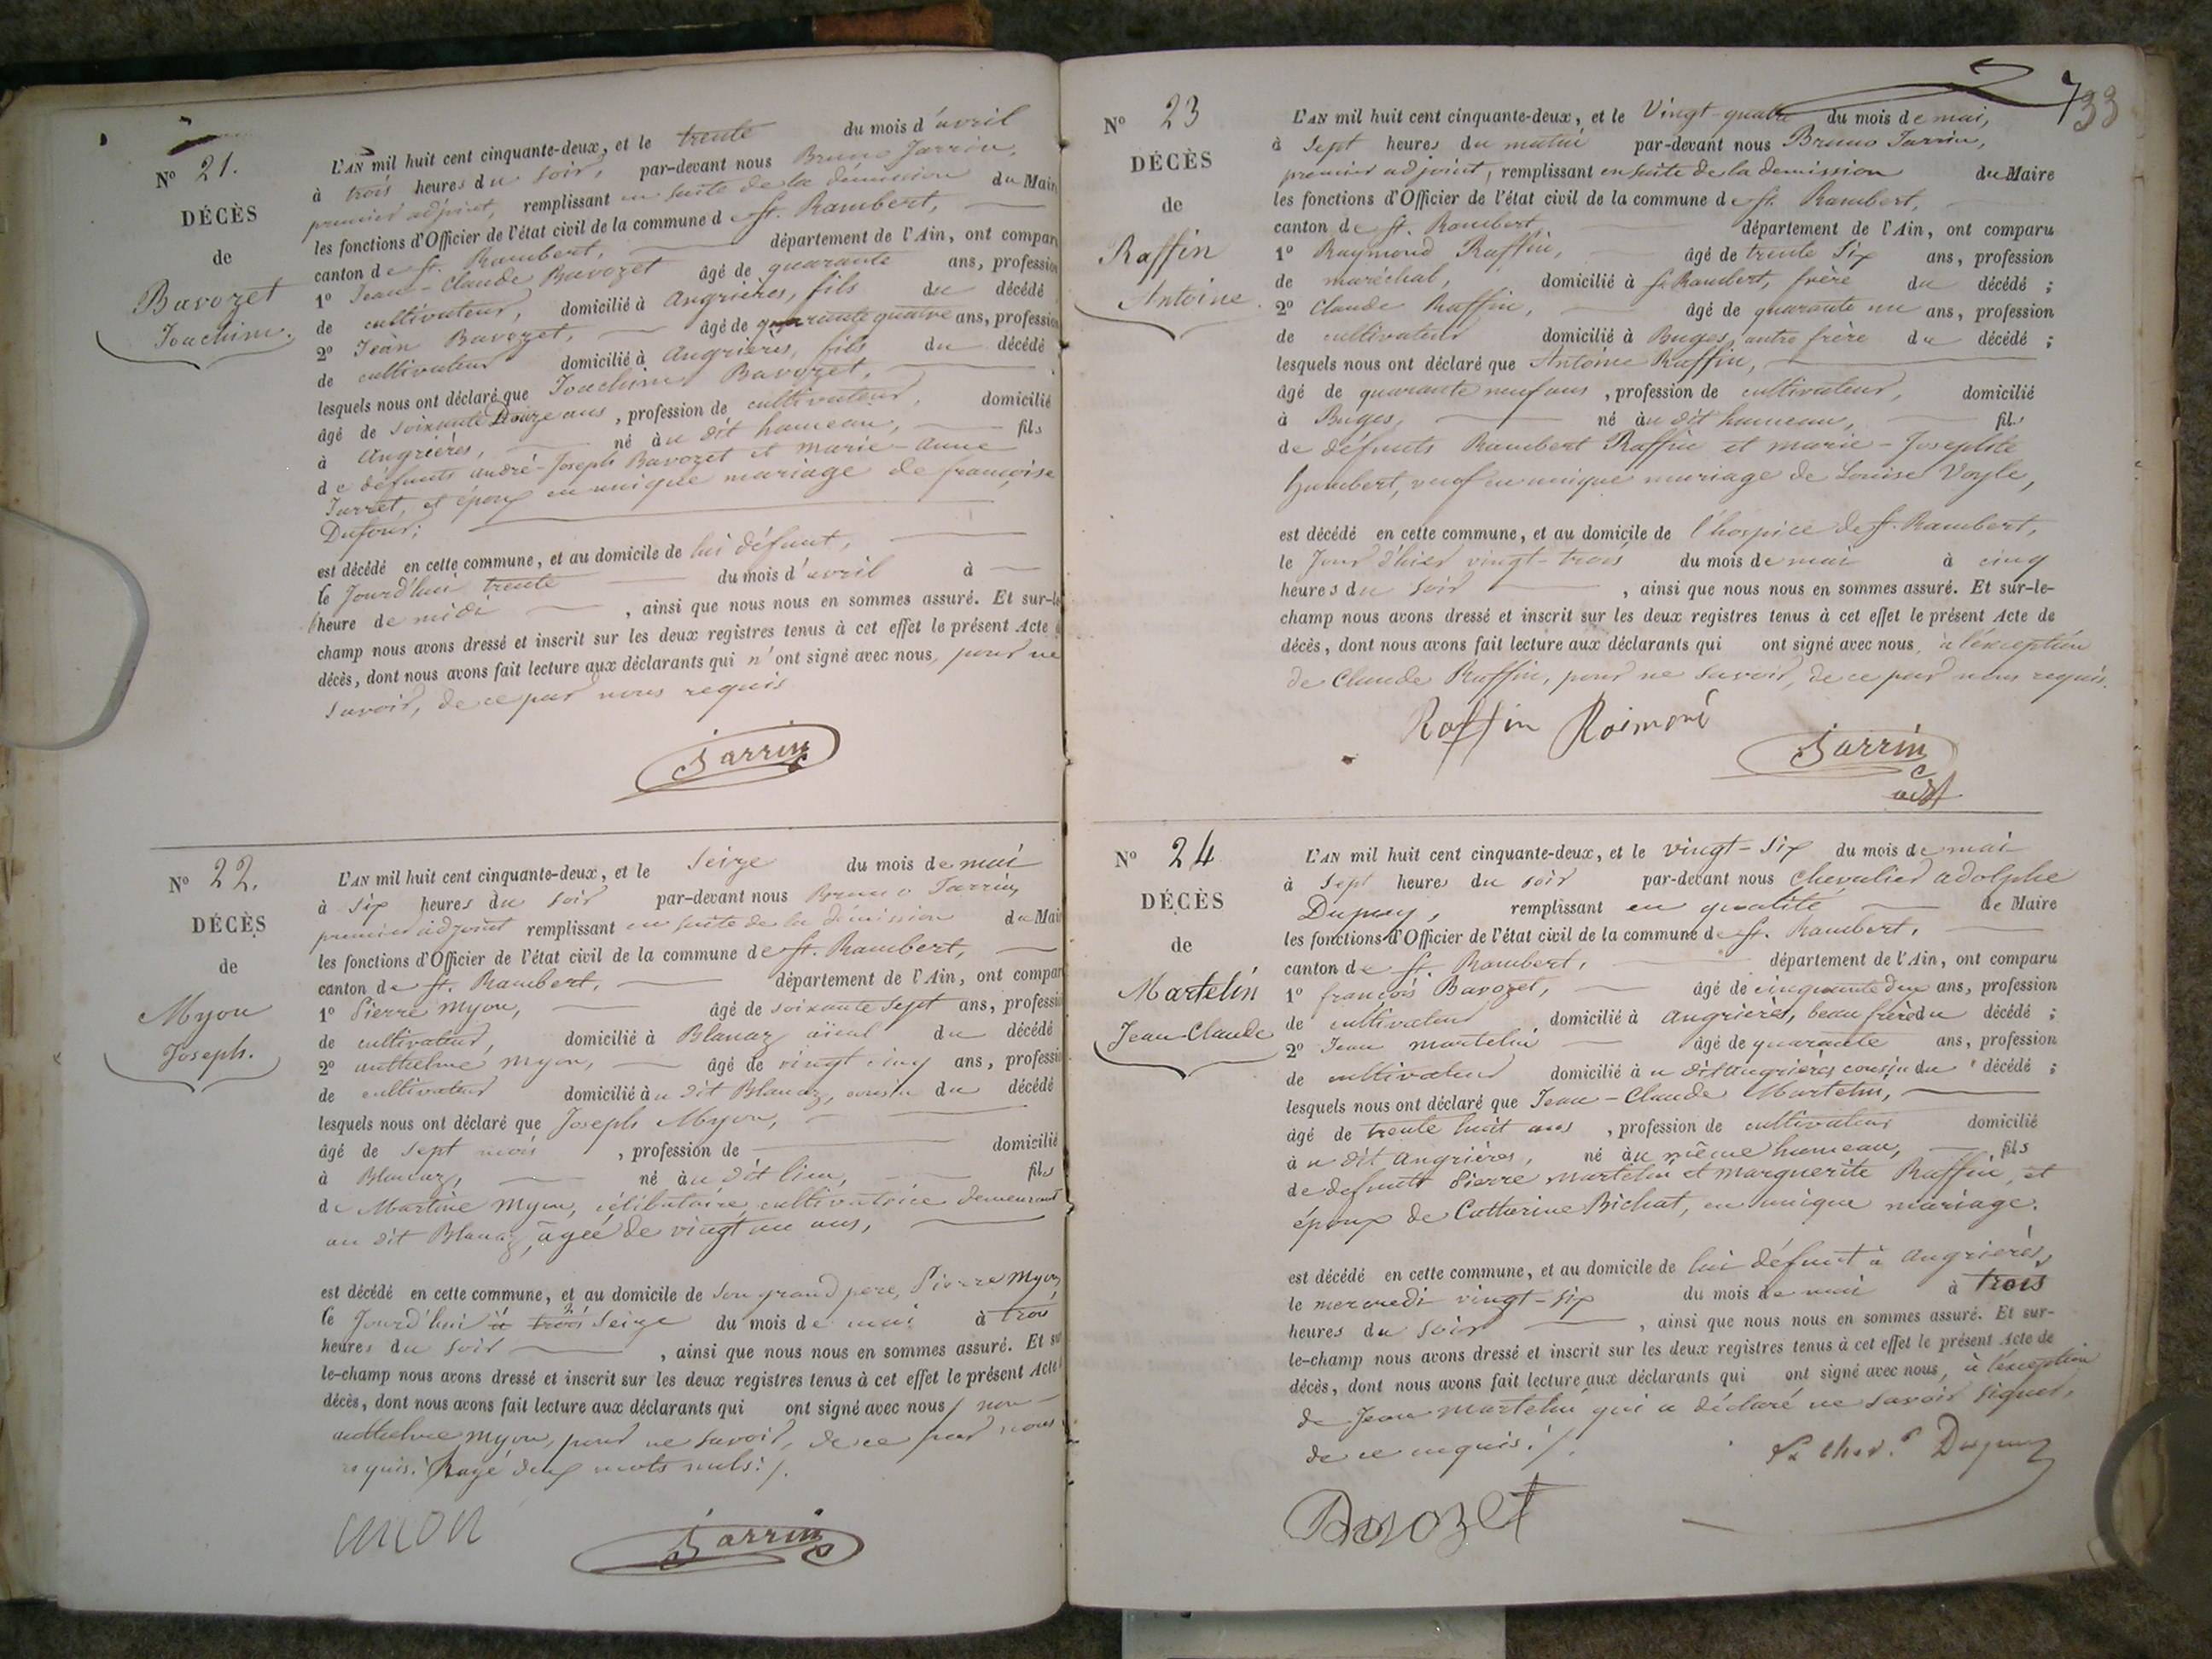 N° 21.
DÉCÈS
de
Bavozet
Joachim.
L'AN mil huit cent cinquante-deux, et le trente du mois d'avril
à trois heures du soir, par-devant nous Bruno Jarrin,
premier adjoint, remplissant en suite de la démission du Mair
les fonctions d'Officier de l'état civil de la commune de St. Rambert,
canton de St. Rambert, département de l'Ain, ont compar
1° Jean-Claude Bavozet âgé de quarante ans, profession
de cultivateur, domicilié à Angrières, fils du décédé
2° Jean Bavozet, âgé de quatre ans, profession
de cultivateur domicilié à Angrières, fils du décédé
lesquels nous ont déclaré que Joachim Bavozet,
âgé de soixante Douze ans, profession de cultivateur, domicilié
à Angrières, né au dit hameau, fils
de défunts andré-Joseph Bavozet et Marie-Anne
Jarret, et époux en unique mariage de françoise
Dufour;
est décédé en cette commune, et au domicile de lui défunt,
le Jourd'hui trente du mois d'avril à
heure de midi, ainsi que nous nous en sommes assuré. Et sur-le
champ nous avons dressé et inscrit sur les deux registres tenus à cet effet le présent Acte d
décès, dont nous avons fait lecture aux déclarants qui n'ont signé avec nous, pour ne
savoir, de ce par nous requis
Jarrin
N° 22.
DÉCÈS
de
Myon
Joseph.
L'AN mil huit cent cinquante-deux, et le Seize du mois de mai
à six heures du soir par-devant nous Bruno Jarrin,
premier adjoint remplissant en suite de la démission du Mair
les fonctions d'Officier de l'état civil de la commune de St. Rambert,
canton de St. Rambert, département de l'Ain, ont compar
1° Pierre Myon, âgé de soixante sept ans, professio
de cultivateur, domicilié à Blanaz aïeul du décédé
2° anthelme Myon, âgé de vingt cinq ans, professio
de cultivateur domicilié au dit Blanaz, cousin du décédé
lesquels nous ont déclaré que Joseph Myon,
âgé de sept mois, profession de domicilié
à Blanaz, né au dit lieu, fils
de Martine Myon, célibataire cultivatrice demeurant
au dit Blanaz, âgée de vingt un ans,
est décédé en cette commune, et au domicile de son grand père, Pierre Myon,
le Jourd'hui à trois Seize du mois de mai à trois
heures du soir, ainsi que nous nous en sommes assuré. Et sur
le-champ nous avons dressé et inscrit sur les deux registres tenus à cet effet le présent Acte
décès, dont nous avons fait lecture aux déclarants qui ont signé avec nous, non
anthelme Myon, pour ne savoir, de ce par nous
requis. Rayé deux mots nuls ./.
Jarrin
733
N° 23
DÉCÈS
de
Raffin
Antoine.
L'AN mil huit cent cinquante-deux, et le Vingt-quatre du mois de mai,
à Sept heures du matin par-devant nous Bruno Jarrin,
premier adjoint, remplissant en suite de la demission du Maire
les fonctions d'Officier de l'état civil de la commune de St. Rambert,
canton de St. Rambert, département de l'Ain, ont comparu
1° Raymond Raffin, âgé de trente Six ans, profession
de maréchal, domicilié à St Rambert, frère du décédé ;
2° Claude Raffin, âgé de quarante un ans, profession
de cultivateur domicilié à Buges, autre frère du décédé ;
lesquels nous ont déclaré que Antoine Raffin,
âgé de quarante neuf ans, profession de cultivateur, domicilié
à Buges, né au dit hameau, fils
de défunts Rambert Raffin et marie-Josephte
humbert, veuf en unique mariage de Louise Vogle,
est décédé en cette commune, et au domicile de l'hospice de St. Rambert,
le Jour d'hier vingt-trois du mois de mai à cinq
heures du soir, ainsi que nous nous en sommes assuré. Et sur-le-
champ nous avons dressé et inscrit sur les deux registres tenus à cet effet le présent Acte de
décès, dont nous avons fait lecture aux déclarants qui ont signé avec nous, à l'exception
de Claude Raffin, pour ne savoir, de ce par nous requis.
Raffin Raimond
Jarrin
adjt
N° 24
DÉCÈS
de
Martelin
Jean-Claude
L'AN mil huit cent cinquante-deux, et le vingt-Six du mois de mai
à Sept heures du soir par-devant nous Chevalier adolphe
Dupuy, remplissant en qualité de Maire
les fonctions d'Officier de l'état civil de la commune de St. Rambert,
canton de St. Rambert, département de l'Ain, ont comparu
1° françois Bavozet, âgé de cinquante deux ans, profession
de cultivateur domicilié à angrières, beau frère du décédé ;
2° Jean martelin âgé de quarante ans, profession
de cultivateur domicilié au dit angrières cousin du décédé ;
lesquels nous ont déclaré que Jean-Claude Martelin,
âgé de trente huit ans, profession de cultivateur domicilié
au dit angrières, né au même hameau, fils
de defunts Pierre martelin et Marguerite Raffin, et
époux de Catherine Bichat, en unique mariage.
est décédé en cette commune, et au domicile de lui défunt à angrières,
le mercredi vingt-six du mois de mai à trois
heures du soir, ainsi que nous nous en sommes assuré. Et sur-
le-champ nous avons dressé et inscrit sur les deux registres tenus à cet effet le présent Acte de
décès, dont nous avons fait lecture aux déclarants qui ont signé avec nous, à l'exception
de Jean martelin qui a déclaré ne savoir signer,
de ce requis ./.
Dupuy
Bavozet